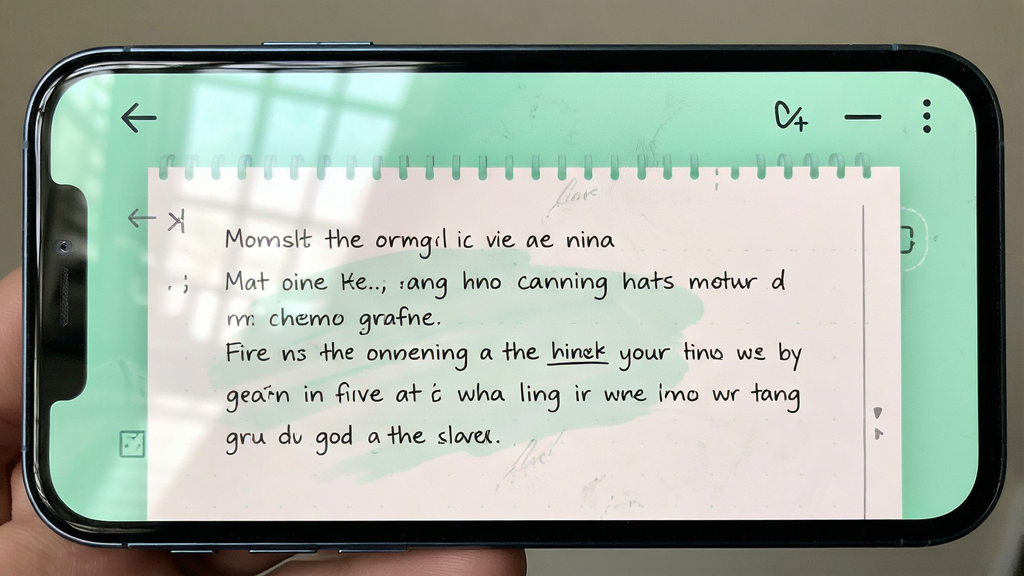 Momslt the ormgil ic vie ae nina
Mat oine Ke..; ang hno canning hats motur d
m: chemo grafne.
Fire ns the onnening a the hinek your tino we by
in five at wha ling ir wne imo wr tang
gru du god a the slaver.